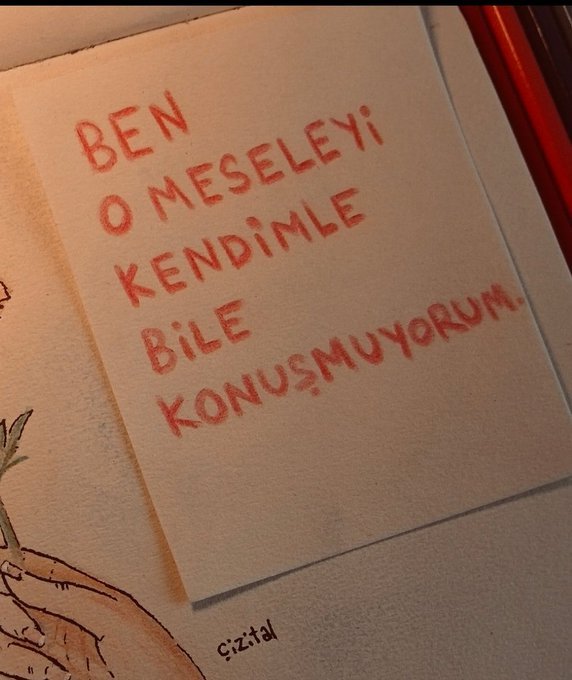 BEN
O MESELEYİ
KENDİMLE
BİLE
KONUŞMUYORUM.
çizital